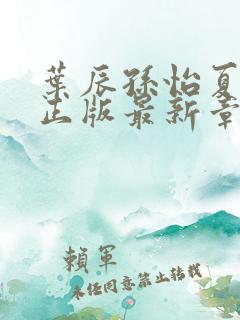 葉辰孫怡夏
出版最新章
賴單
未任同意禁止转载